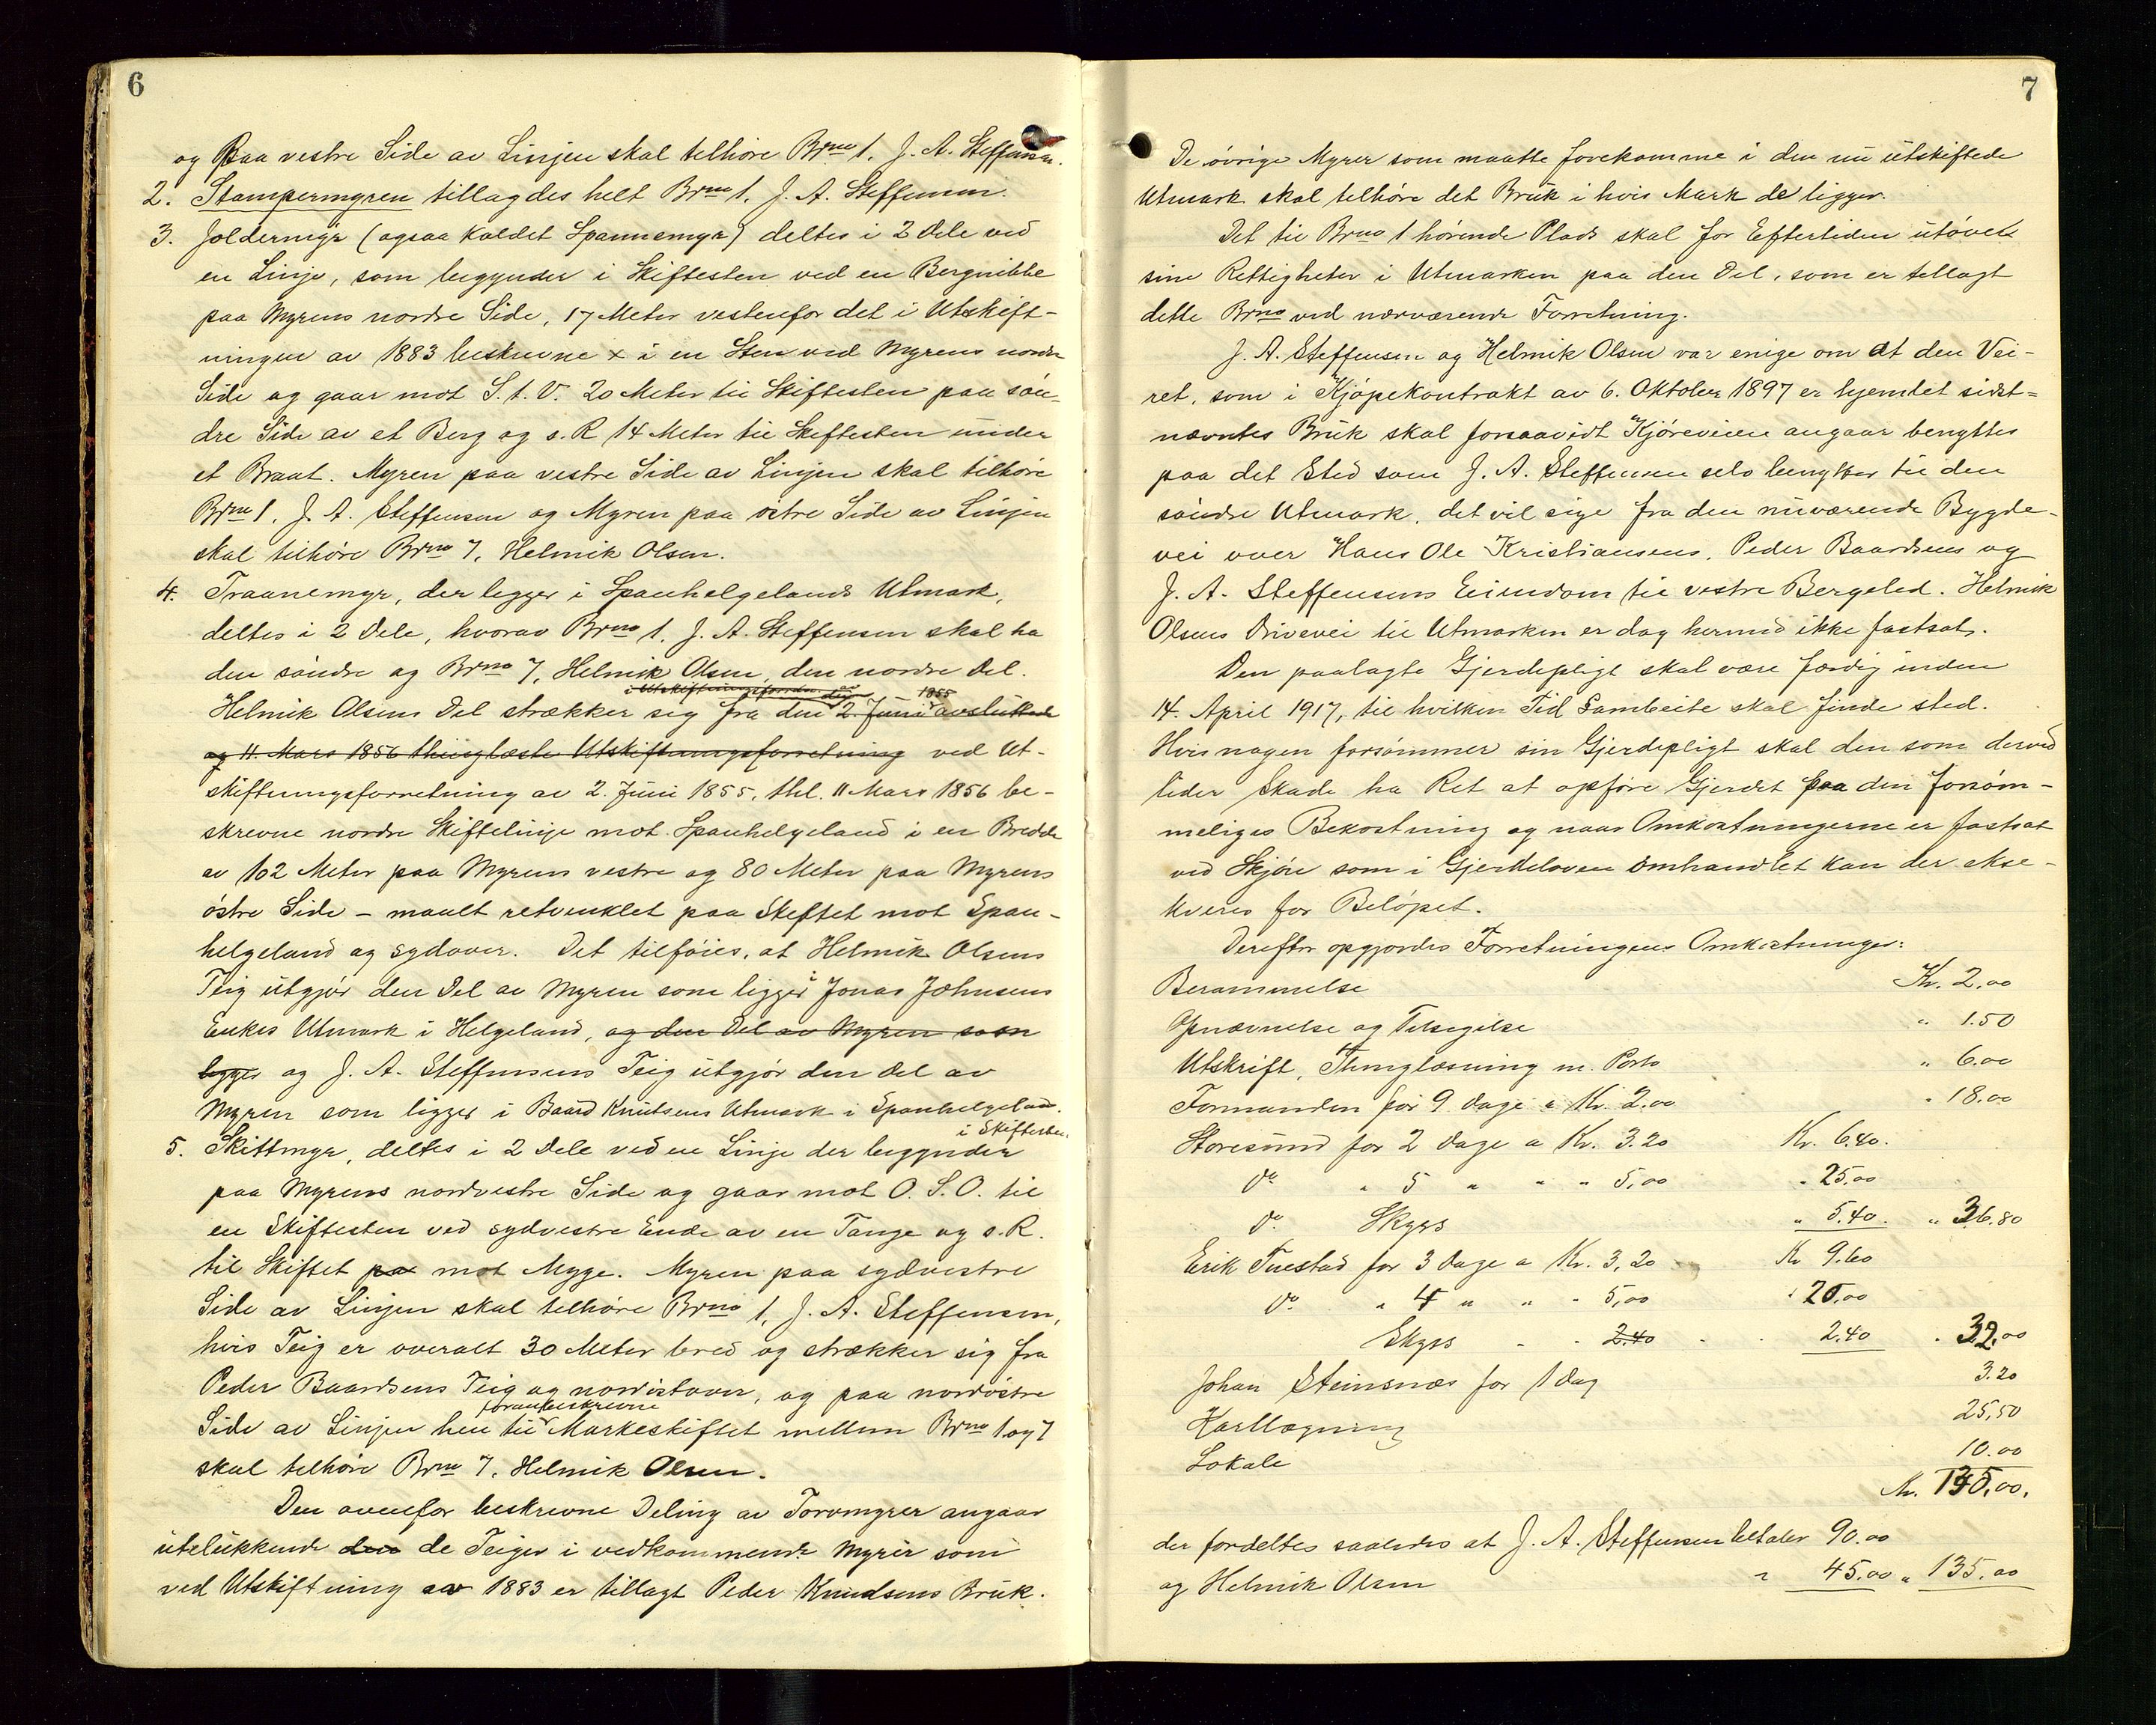 6
og Paa vestre Side av Linjen skal tilhöre Brno 1, J. A. Steffensen.
2. Stampermyren tillagdes helt Brno 1, J. A. Steffensen.
3. Joldermyr (ogsaa kaldet Spannemyr) deltes i 2 Dele ved
en Linje, som begynder i Skiftesten ved en Bergnibbe
paa Myrens nordre Side, 17 Meter vestenfor det i Utskift-
ningen av 1883 beskrevne x i en Sten ved Myrens nordre
Side og gaar mot S. t. V. 20 Meter til Skiftesten paa sön-
dre Side av et Berg og s. R 14 Meter til Skiftesten under
et Braat. Myren paa vestre Side av Linjen skal tilhöre
Brno 1, J. A. Steffensen og Myren paa östre Side av Linjen
skal tilhöre Brno 7, Helmik Olsen.
4. Traanemyr, der ligger i Spanhelgelands Utmark,
deltes i 2 Dele, hvorav Brno 1, J. A. Steffensen skal ha
den söndre og Brno 7, Helmik Olsen, den nordre Del.
1855
Helmik Olsens Del strækker sig fra den 2. Juni avsluttede
og 11. Mars 1856 thinglæste Utskiftningsforretning ved Ut-
skiftningsforretning av 2. Juni 1855, thl. 11 Mars 1856 be-
skrevne nordre Skiftelinje mot Spanhelgeland i en Bredde
av 102 Meter paa Myrens vestre og 80 Meter paa Myrens
östre Side - maalt retvinklet paa Skiftet mot Span-
helgeland og sydover. Det tilföies, at Helmik Olsens
Teig utgjör den Del av Myren som ligger i Jonas Johnsens
Enkes Utmark i Helgeland, og den Del av Myren som
ligger og J. A. Steffensens Teig utgjör den Del av
Myren som ligger i Baard Knutsens Utmark i Spanhelgeland.
i Skiftesten
5. Skittmyr, deltes i 2 Dele ved en Linje der begynder
paa Myrens nordvestre Side og gaar mot O. S. O. til
en Skiftesten ved sydvestre Ende av en Tange og s. R.
til Skiftet paa mot Mygge. Myren paa sydvestre
Side av Linjen skal tilhöre Brno 1, J. A. Steffensen,
hvis Teig er overalt 30 Meter bred og strækker sig fra
Peder Baardsens Teig og nordostover, og paa nordöstre
foranbeskrevne
Side av Linjen hen til Markeskiftet mellem Brno 1 og 7
skal tilhöre Brno 7, Helmik Olsen.
Den ovenfor beskrevne Deling av Torvmyrer angaar
utelukkende den de Teiger i vedkommende Myrer som
ved Utskiftning av 1883 er tillagt Peder Knudsens Bruk.
7
De övrige Myrer som maatte forekomme i den nu utskiftede
Utmark skal tilhöre det Bruk i hvis Mark de ligger.
Det til Brno 1 hörende Plads skal for Eftertiden utöve
sine Rettigheter i Utmarken paa den Del, som er tillagt
dette Brno ved nærværende Forretning.
J. A. Steffensen og Helmik Olsen var enige om at den Vei-
ret, som i Kjöpekontrakt av 6. Oktober 1897 er hjemlet sidst-
nævntes Bruk skal forsaavidt Kjöreveien angaar benyttes
paa det Sted som J. A. Steffensen selv benytter til den
söndre Utmark, det vil sige fra den nuværende Bygde-
vei over Hans Ole Kristiansens, Peder Baardsens og
J. A. Steffensens Eiendom til vestre Bergeled. Helmik
Olsens Drivevei til Utmarken er dog hermed ikke fastsat.
Den paalagte Gjerdepligt skal være færdig inden
14. April 1917, til hvilken Tid Sambeite skal finde sted.
Hvis nogen forsömmer sin Gjerdepligt skal den som derved
lider Skade ha Ret at opföre Gjerdet paa den Forsöm-
meliges Bekostning og naar Omkostningerne er fastsat
ved Skjön som i Gjerdeloven omhandlet kan der ekse-
kveres for Belöpet.
Derefter opgjordes Forretningens Omkostninger:
Berammelse Kr. 2,00
Opnævnelse og Tilsigelse " 1.50
Utskrift, Thinglæsning m. Porto " 6.00
Formanden for 9 Dage a Kr. 2.00 " 18.00
Storesund for 2 Dage a Kr. 3.20 Kr. 6.40.
Do " 5 " " " 5,00 " 25,00
Do Skyss " 5.40. " 36.80
Erik Tuestad for 3 Dage a Kr. 3,20 Kr 9.60
Do " 4 " " " 5,00 " 20,00
Skyss " " 2.40 " " 2.40 " 32,00
Johan Steinsnes for 1 Dag 3.20
Kartlægning 25,50
Lokale 10.00
Kr. 135,00.
der fordeltes saaledes at J. A. Steffensen betaler 90.00
og Helmik Olsen " 45.00 " 135.00